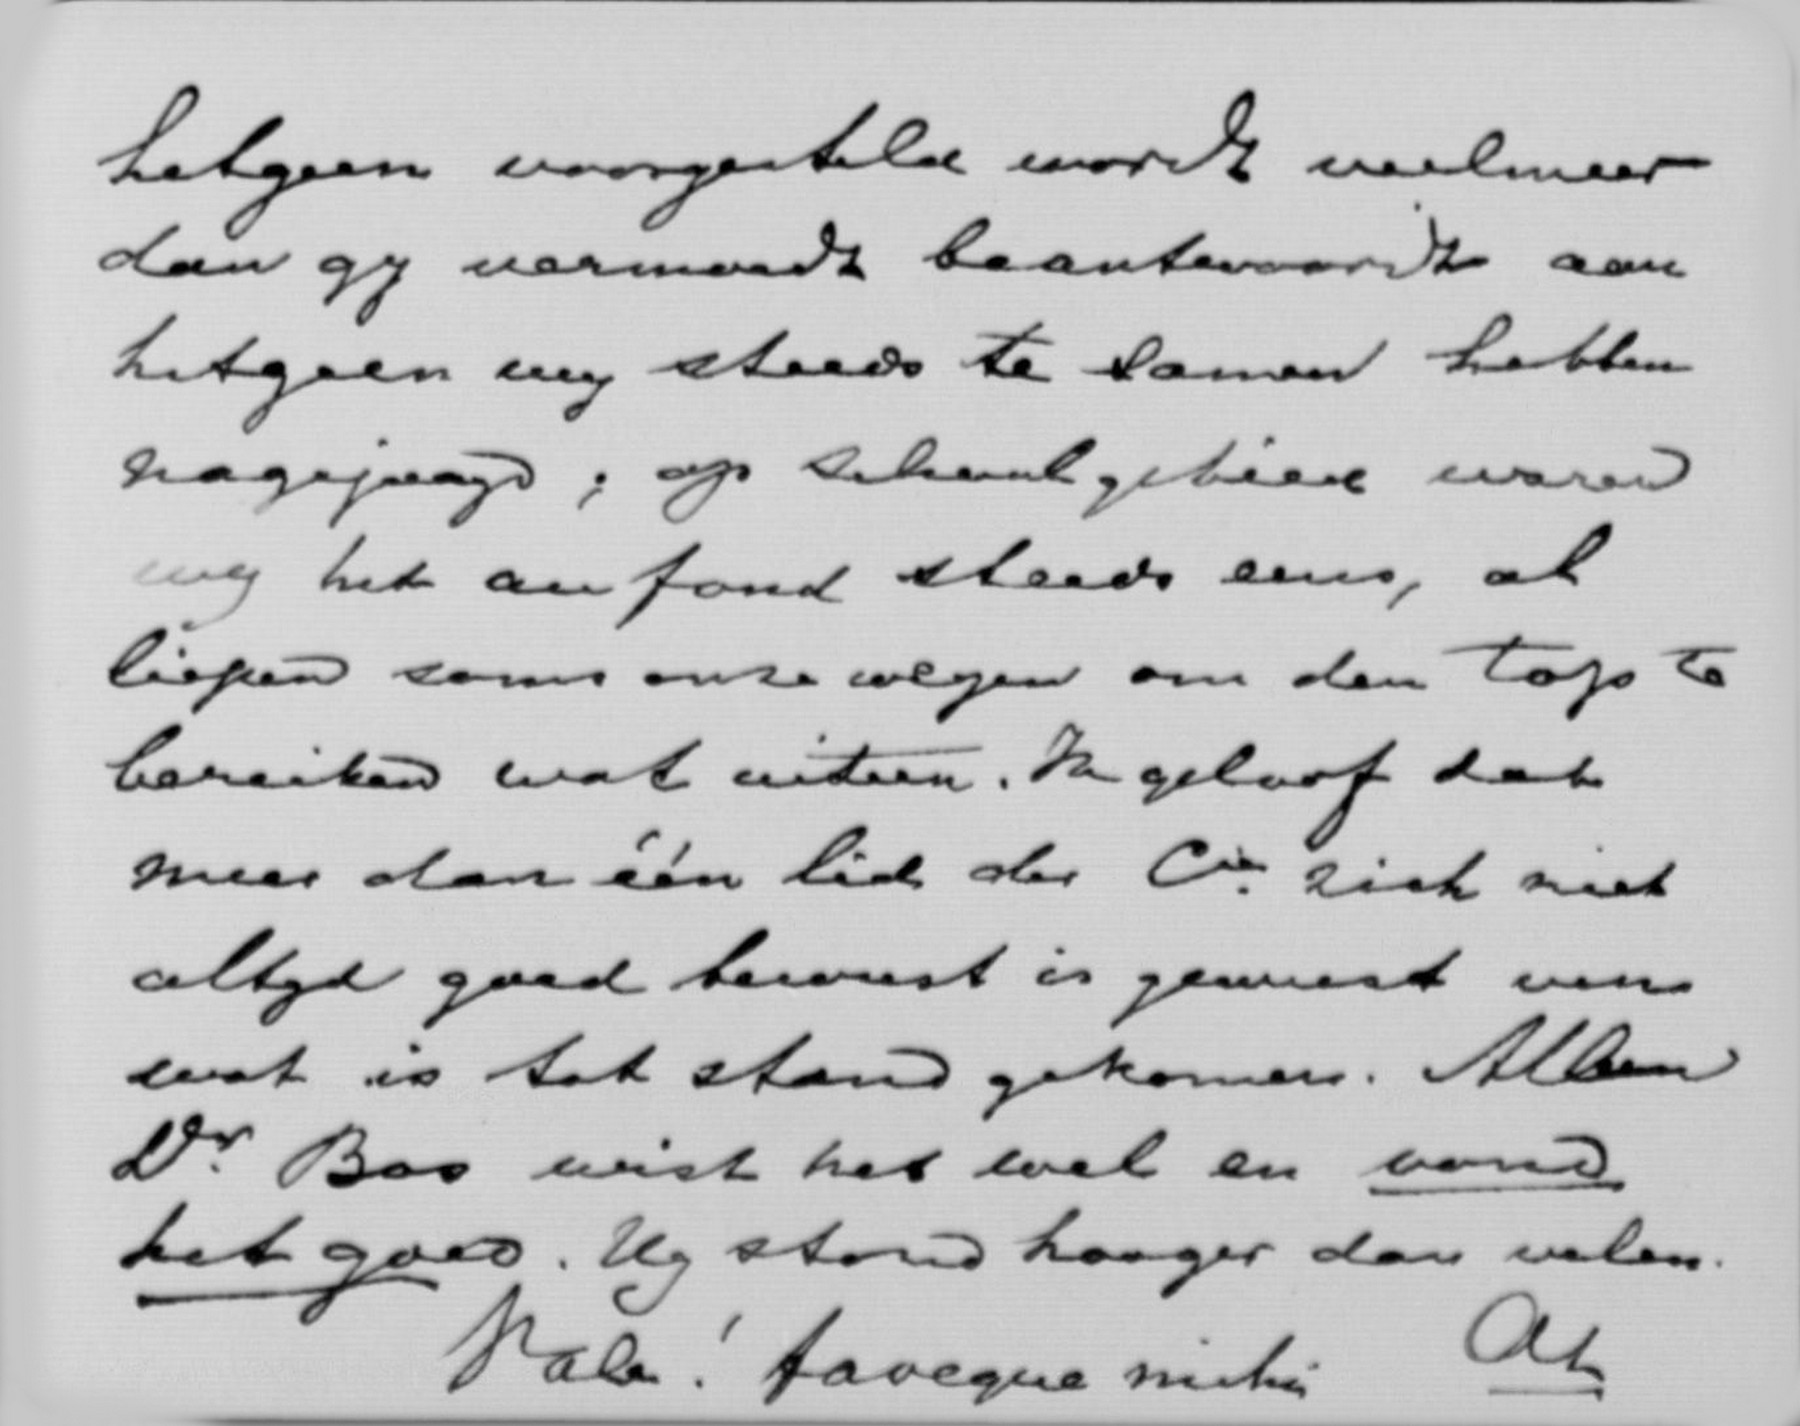 hetgeen voorgesteld wordt veelmeer
dan gy vermoedt beantwoordt aan
hetgeen wy steeds te samen hebben
nagejaagd; op schoolgebied waren
wy het au fond steeds eens, al
liepen soms onze wegen om den top te
bereiken wat uiteen. Ik geloof dat
meer dan één lid der Cie. zich niet
altyd goed bewust is geweest van
wat is tot stand gekomen. Alleen
Dr. Bos wist het wel en vond
het goed. Hy stond hooger dan velen.
Vale! faveque mihi